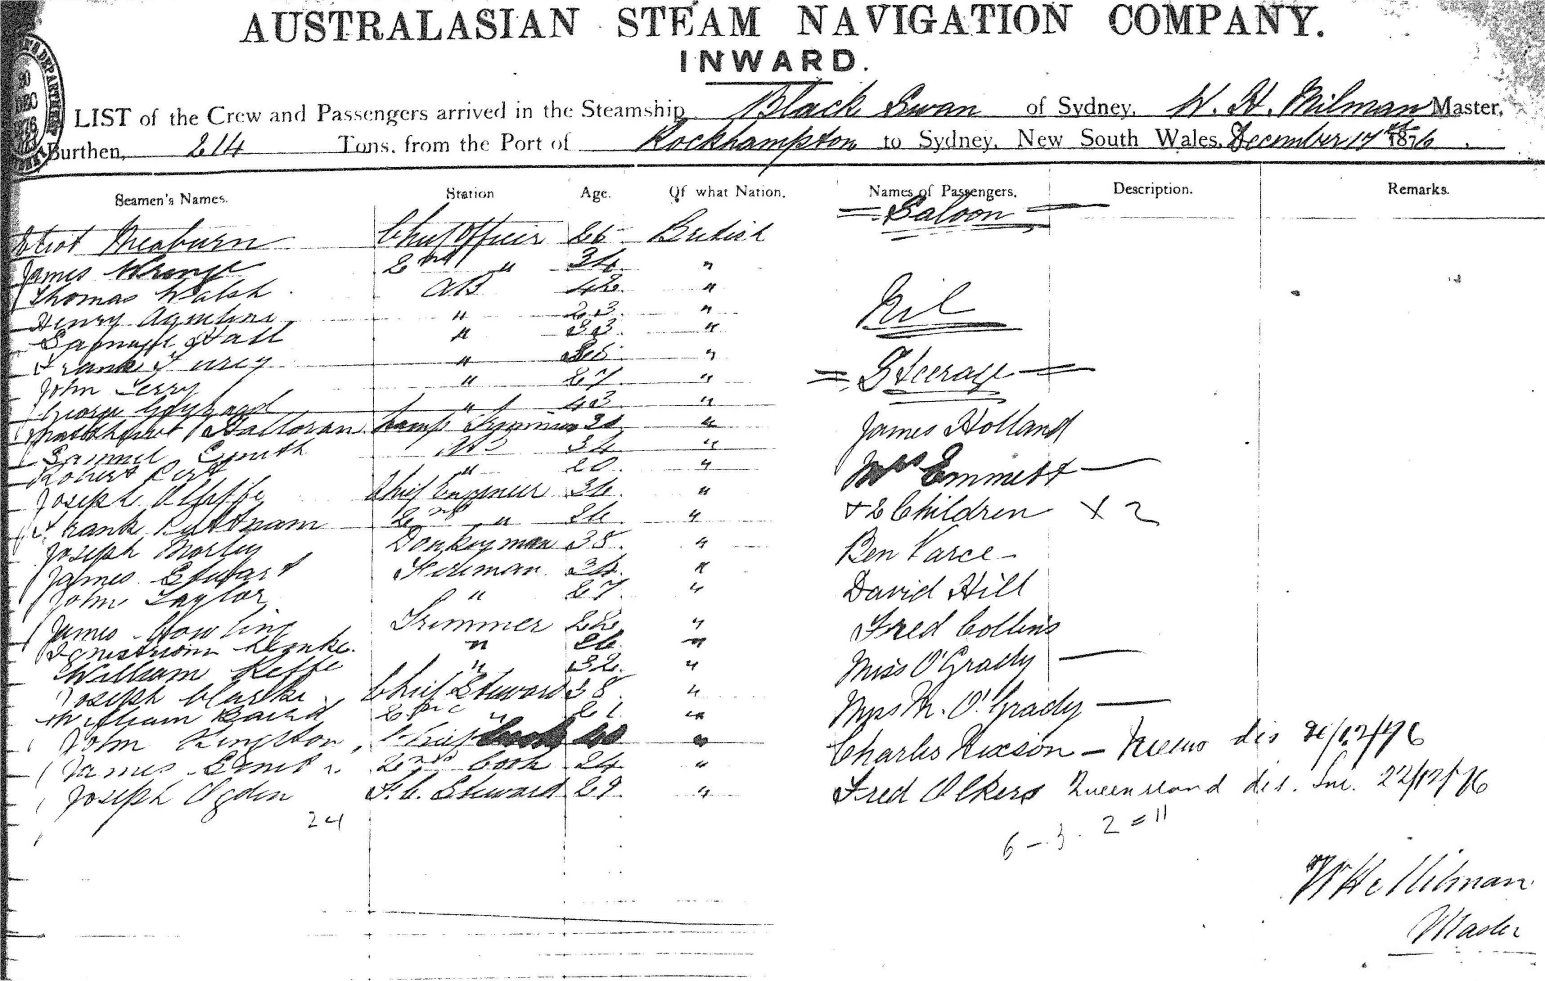 AUSTRALASIAN STEAM NAVIGATION COMPANY.
INWARD.
LIST of the Crew and Passengers arrived in the Steamship Black Swan of Sydney, W. H. Milman Master,
Burthen, 214 Tons, from the Port of Rockhampton to Sydney, New South Wales, December 17th 1876.
Seamen's Names. Station Age. Of what Nation. Names of Passengers. Description. Remarks.
= Saloon =
Meaburn Chief Officer 25 British
James 2nd " 34 "
Thomas Walsh AB 42 "
Henry " 23 "
Nil
Samuel Hall " 33 "
Frank " "
= Steerage =
John Terry " 27 "
George " 43 "
Matthew Halloran Lamp Trimmer "
James Holland
Samuel Smith AB 34 "
Robert " 20 "
Mrs Emmett —
Joseph Chief Engineer "
Frank Puttnam 2nd " "
& 2 Children × 2
Joseph Morley Donkeyman 38 "
Ben Varce —
James Stewart Fireman "
John Taylor " 27 "
David Hill
James Howling Trimmer 22 "
" "
Fred Collins
William Keffe " 32 "
Miss O'Grady —
Joseph Clarke Chief Steward 38 "
William Baird 2nd " 21 "
Mrs M. O'Grady —
John Kingston Chief Cook 40 "
Charles Nixson — dis /12/76
James Smith 2nd Cook 24 "
Joseph Ogden F. C. Steward 29 "
Fred Olkers Queensland dis. 22/12/76
24
6 - 3 - 2 = 11
W H Milman
Master